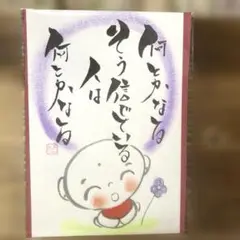 何とかなるね
そう信じている
人は
何とかなるね